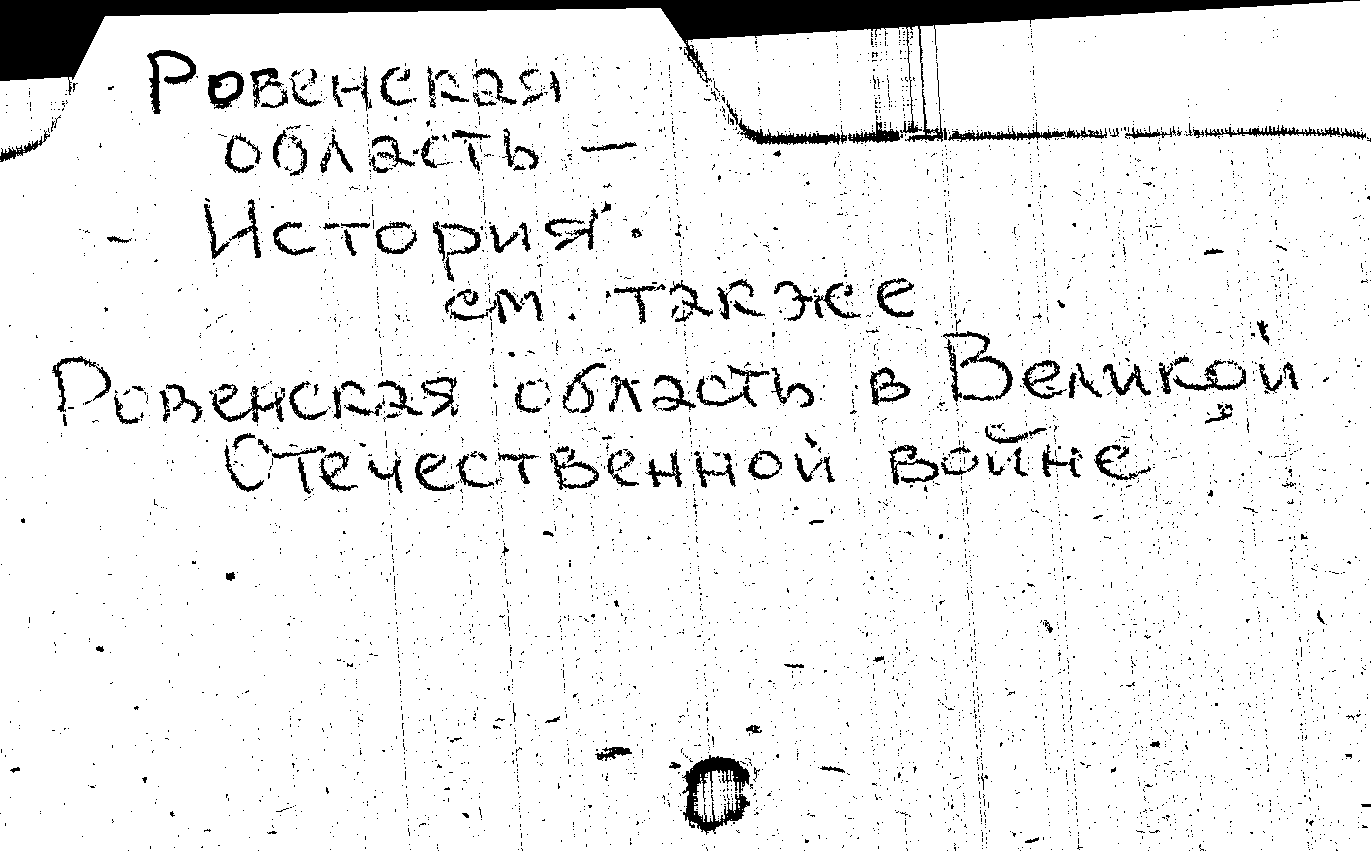 Ровенская
область —
- История.
см. также
Ровенская область в Великой
Отечественной войне